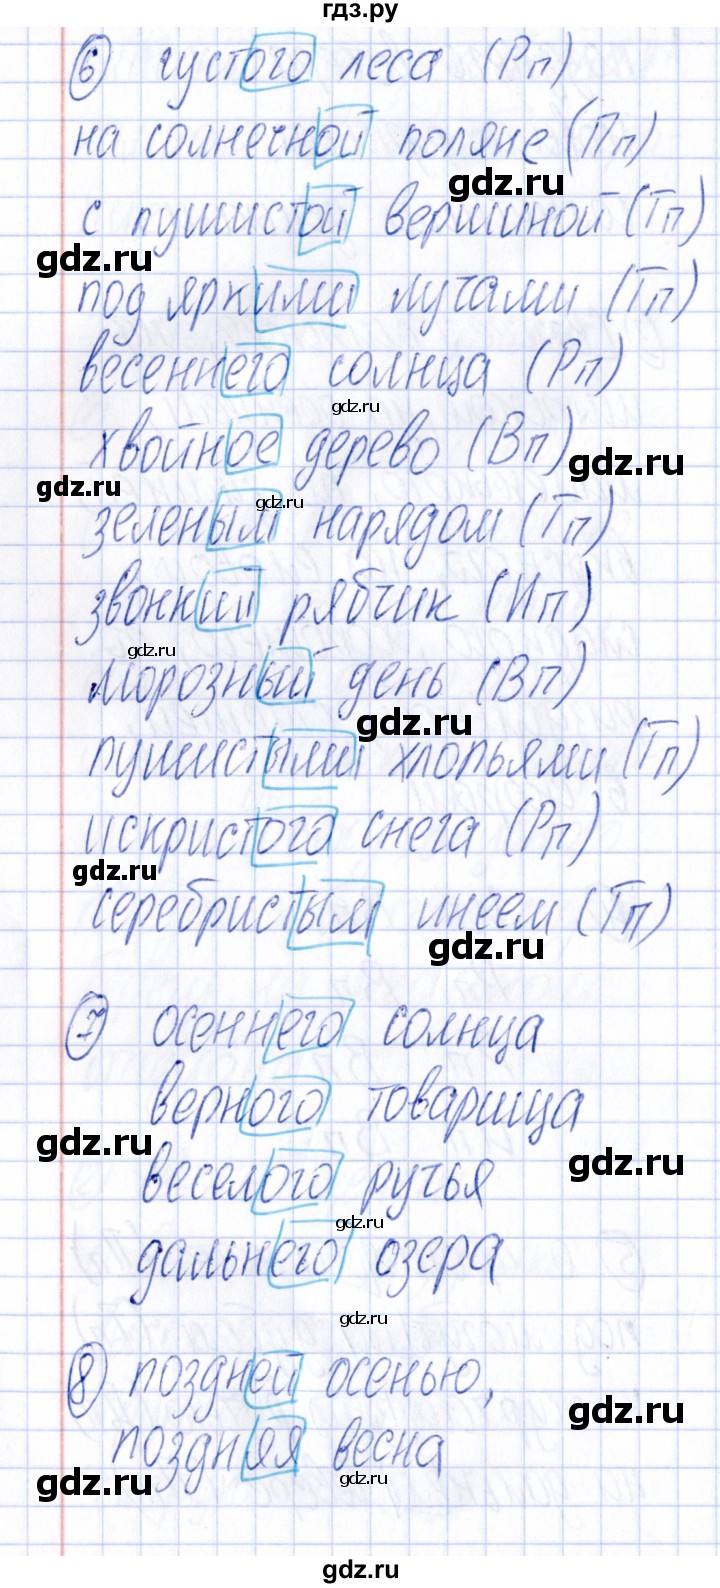 гдз.ру
6 густого леса (Рп)
на солнечной поляне (Пп)
gdz.ru
с пушистой вершиной (Тп)
gdz.ru
под яркими лучами (Тп)
весеннего солнца (Рп)
gdz.ru
хвойное дерево (Вп)
gdz.ru
gdz.ru
gdz.ru
зеленым нарядом (Тп)
звонкий рябчик (Ип)
gdz.ru
морозный день (Вп)
gdz.ru
пушистыми хлопьями (Тп)
искристого снега (Рп)
gdz.ru
серебристым инеем (Тп)
gdz.ru
7 осеннего солнца
верного товарища
gdz.ru
gdz.ru
веселого ручья
gdz.ru
дальнего озера
gdz.ru
8 поздней осенью,
gdz.ru
поздняя весна
gdz.ru
gdz.ru
gdz.ru